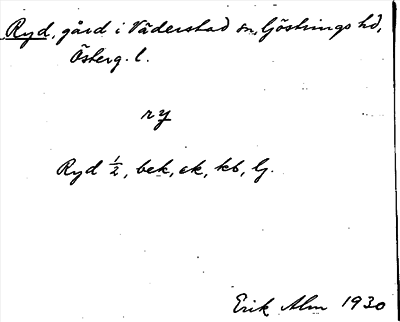 Ryd, gård i Väderstad sn, Göstrings hd,
Österg. l.
ry
Ryd ½, bek, ek, kb, lj.
Erik Alm 1930